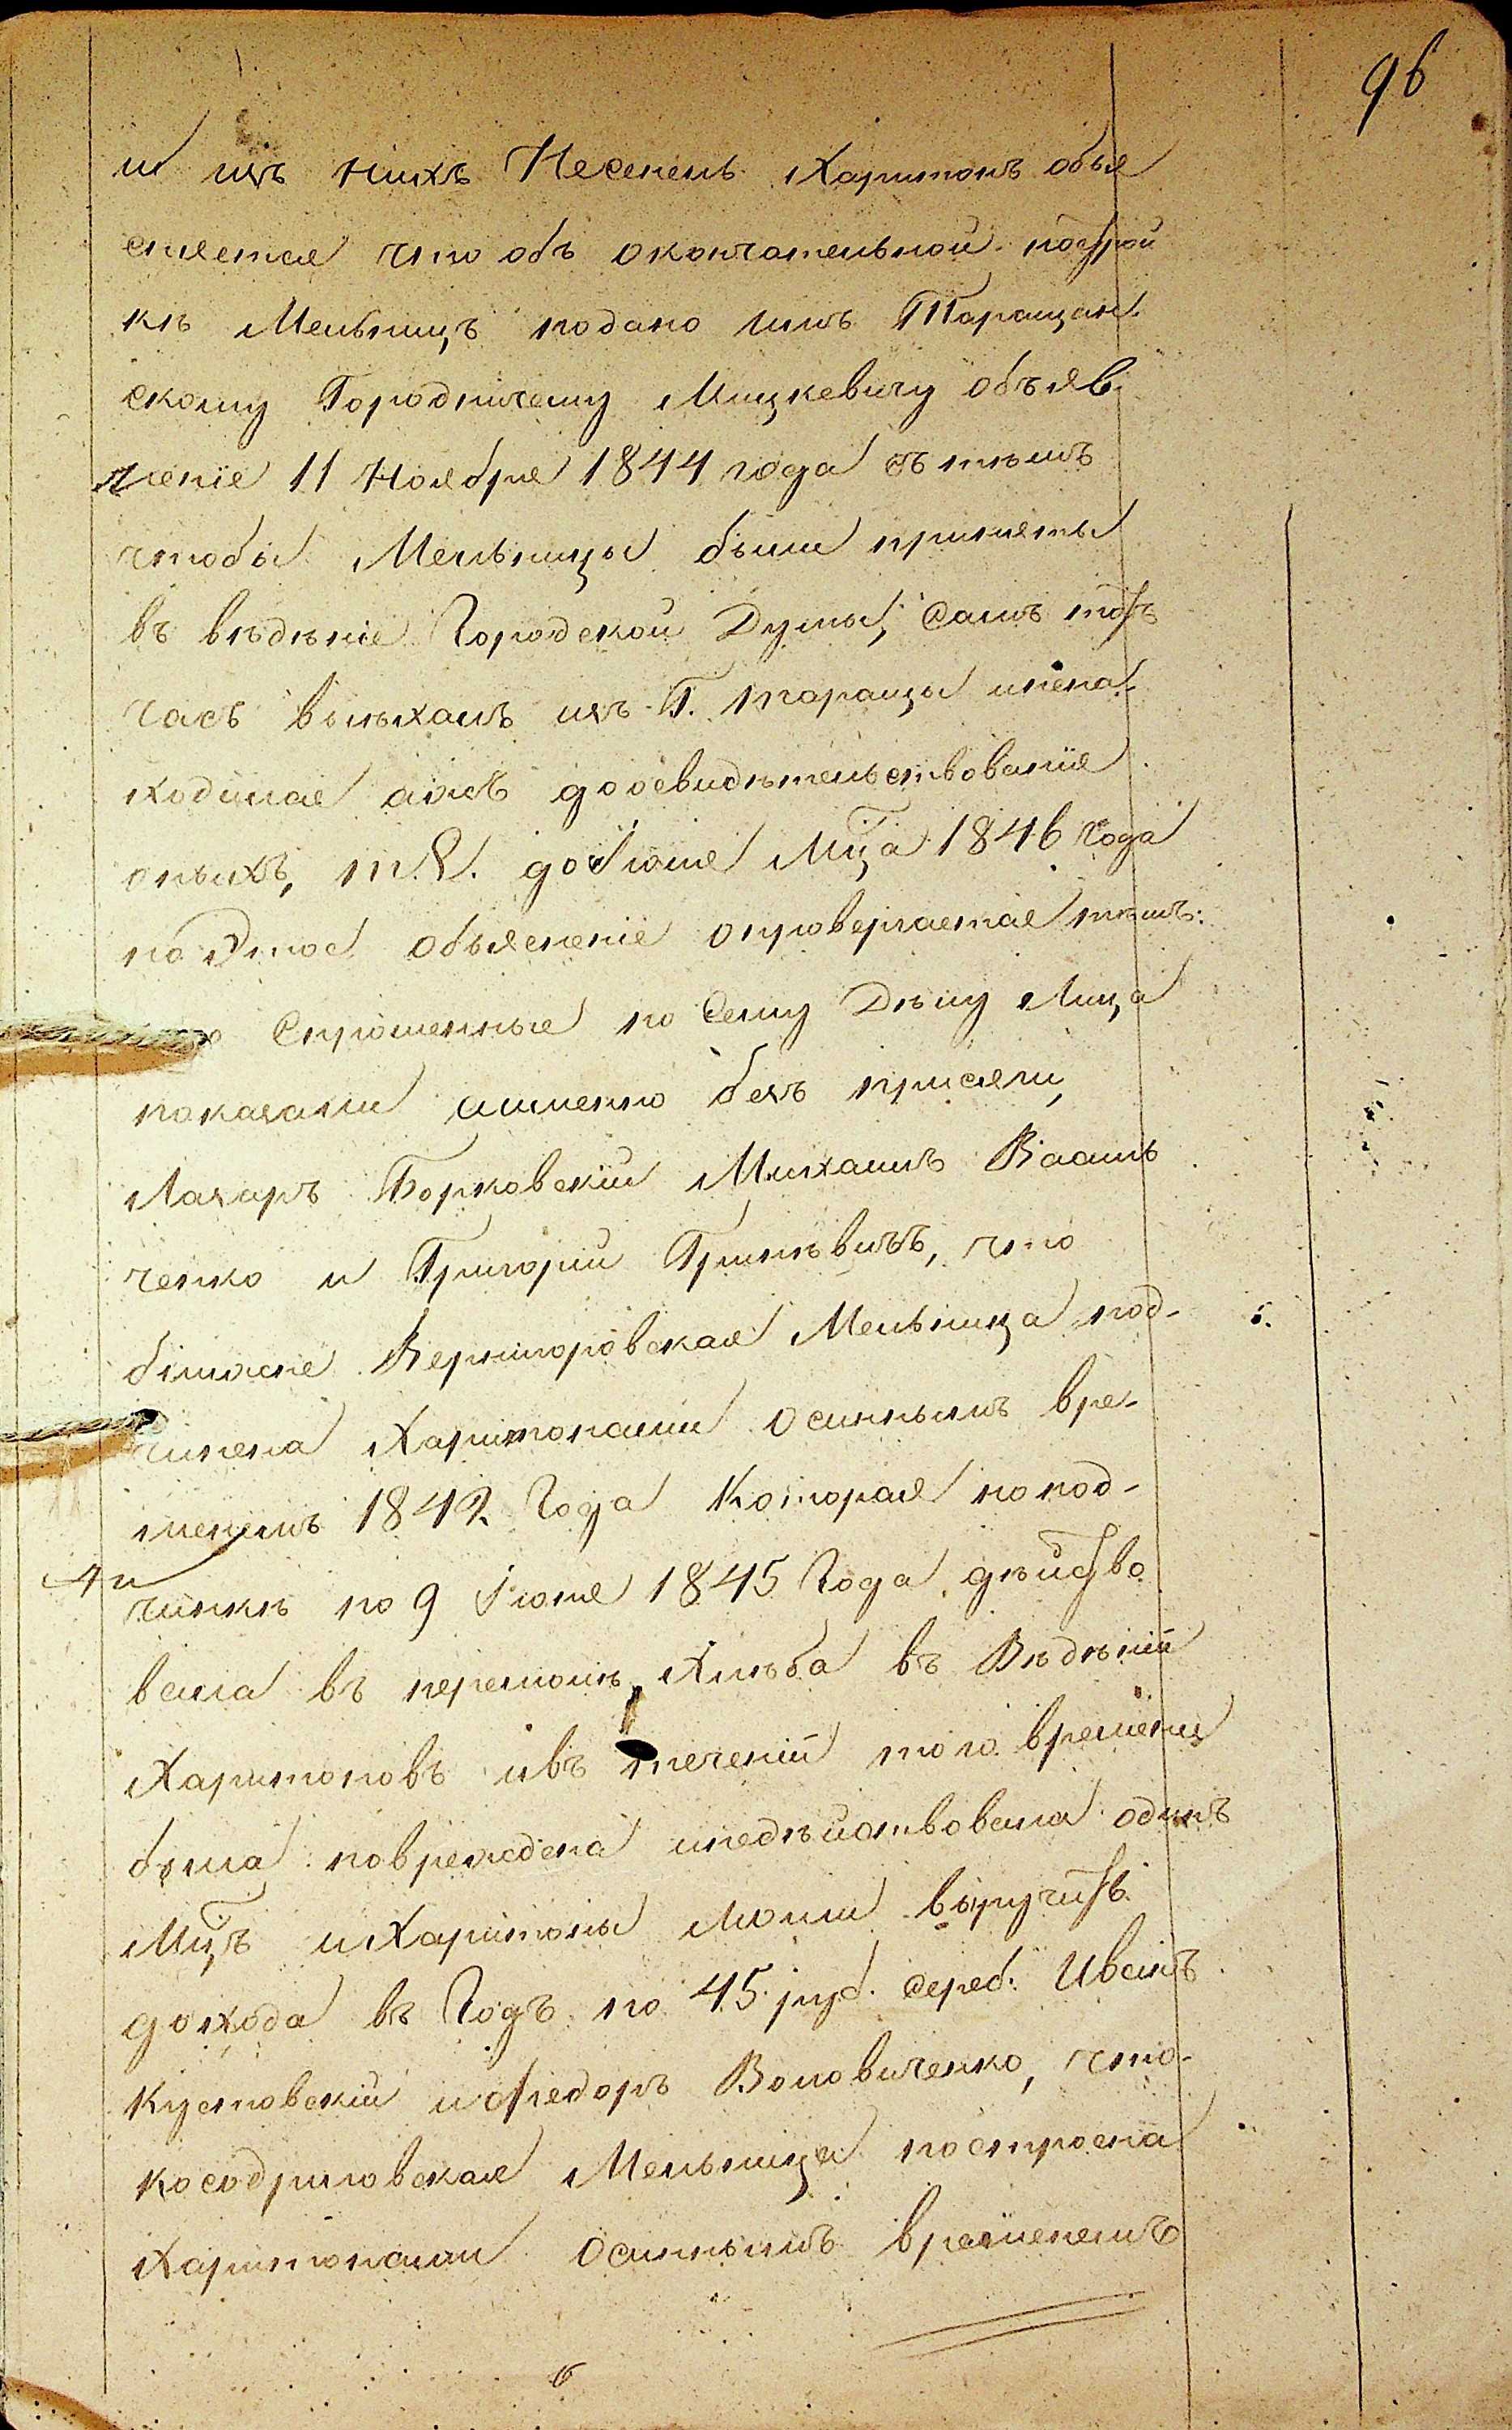 96
и изъ нихъ Несенель Харитонъ объя
сняется что объ окончательной построй
кѣ Мельницъ подано имъ Таращан
скому Городничему Мицкевичу объяв
леніе 11 Ноября 1844 года съ тѣмъ
чтобы Мельницы были приняты
въ вѣдѣніе Городской Думы, самъ тотъ
часъ выѣхалъ изъ Г. Таращи инена
ходился ажъ доосвидѣтельствованія
оныхъ, т. е. до Іюня Мца 1846 года
но Этое объясненіе опровергается тѣмъ:
Спрошенные по Сему Дѣлу Лица
показали именно безъ присяги,
Лазарь Борковскій Михаилъ Ваашъ
ченко и Григорій Гриневичъ, что
ближнѣ Вернигоровская Мельница под-
чинена Харитонами Осиннымъ вре-
менемъ 1842 Года Которая попод-
чинкѣ по 9 Іюня 1845 Года дѣйство
вала въ перемолѣ Хлѣба въ Вѣдѣніи
Харитоновъ ивъ теченіи того времени
была повреждена инедѣйствовала одинъ
Мцъ иХаритоны могли выручить
дохода въ Годъ по 45 руб. сереб: Иванъ
Кустовскій иФедоръ Воловиченко, что
косодриговская Мельница построена
Харитонами Осиннымъ временемъ